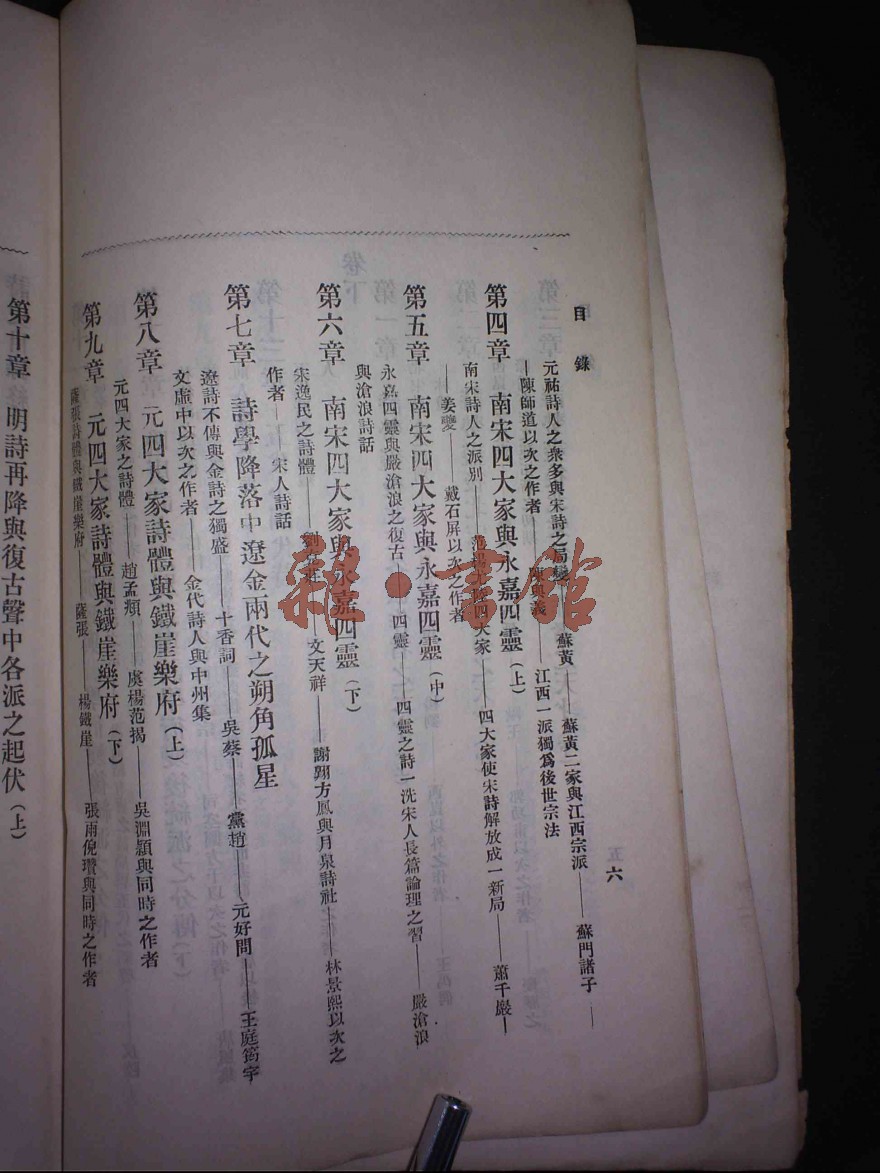 目錄
六
元祐詩人之衆多與宋詩之局變——蘇黃——蘇黃二家與江西宗派——蘇門諸子——
—陳師道以次之作者——陳與義——江西一派獨爲後世宗法
第四章 南宋四大家與永嘉四靈(上)
南宋詩人之派別——范楊尤陸四大家——四大家使宋詩解放成一新局——蕭千巖—
—姜夔——戴石屏以次之作者
第五章 南宋四大家與永嘉四靈(中)
永嘉四靈與嚴滄浪之復古——四靈——四靈之詩一洗宋人長篇論理之習——嚴滄浪
與滄浪詩話
第六章 南宋四大家與永嘉四靈(下)
宋逸民之詩體——劉——文天祥——謝翺方鳳與月泉詩社——林景熙以次之
作者——宋人詩話
第七章 詩學降落中遼金兩代之朔角孤星
遼詩不傳與金詩之獨盛——十香詞——吳蔡——黨趙——元好問——王庭筠宇
文虛中以次之作者——金代詩人與中州集
第八章 元四大家詩體與鐵崖樂府(上)
元四大家之詩體——趙孟頫——虞楊范揭——吳淵頴與同時之作者
第九章 元四大家詩體與鐵崖樂府(下)
薩張詩體與鐵崖樂府——薩張——楊鐵崖——張雨倪瓚與同時之作者
第十章 明詩再降與復古聲中各派之起伏(上)
雜·書館